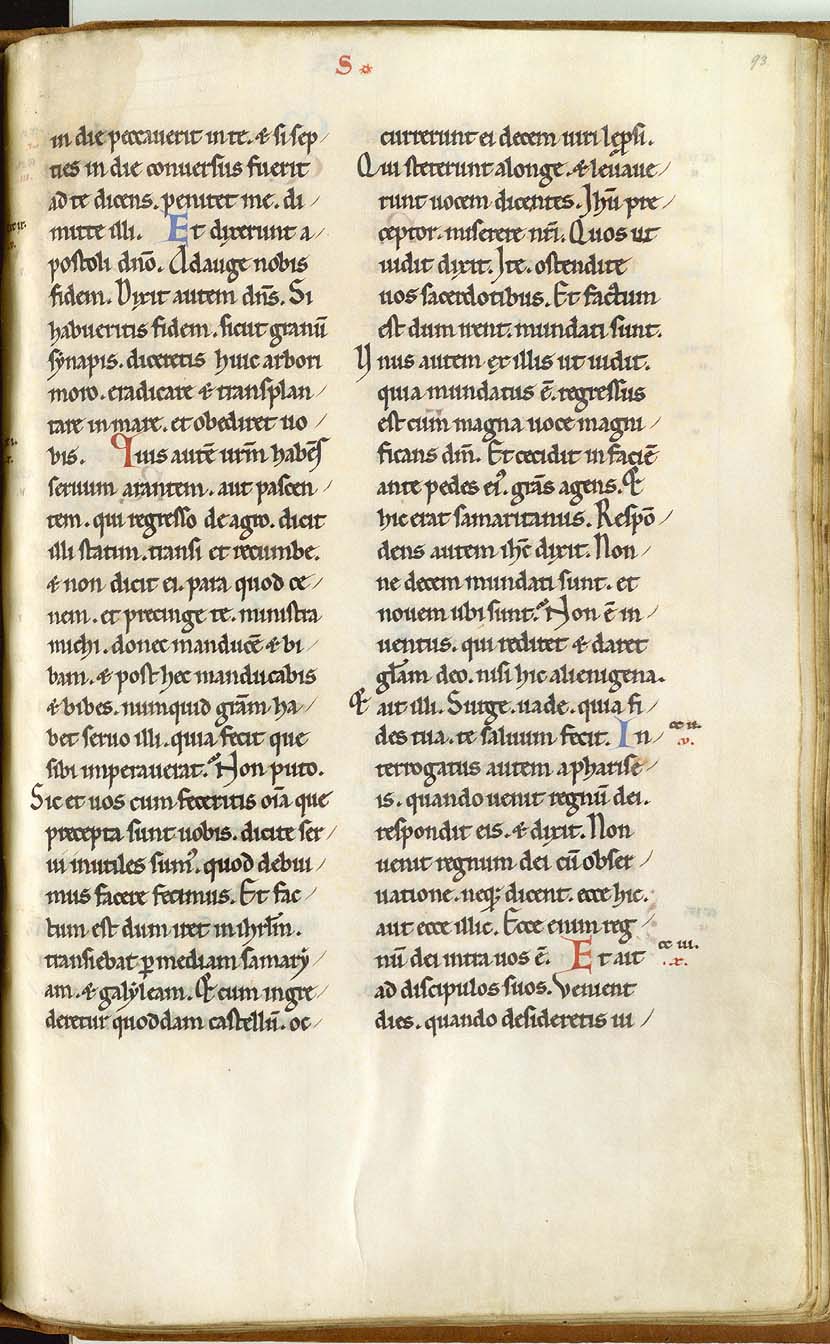 S
93
in die peccauerit in te. & si sep/
ties in die conuersus fuerit
ad te dicens. penitet me. di/
mitte illi. Et dixerunt a/
postoli dn̄o. Adauge nobis
fidem. Dixit autem dn̄s. Si
habueritis fidem. sicut granū
synapis. diceretis huic arbori
moro. eradicare & transplan/
tare in mare. et obediret uo/
bis. Quis autē ur̄m habēs
seruum arantem. aut pascen/
tem. qui regresso de agro. dicit
illi statim. transi et recumbe.
& non dicit ei. para quod ce/
nem. et precinge te. ministra
michi. donec manducē & bi/
bam. & post hec manducabis
& bibes. numquid grām ha/
bet seruo illi. quia fecit que
sibi imperauerat. Non puto.
Sic et uos cum feceritis oīa que
precepta sunt uobis. dicite ser/
ui inutiles sum᾿. quod debui/
mus facere fecimus. Et fac/
tum est dum iret in ihrl̄m.
transiebat p̱ mediam samarẏ/
am. & galẏleam. Et cum ingre/
deretur quoddam castellū. oc/
currerunt ei decem uiri lep̱si.
Qui steterunt a longe. & leuaue/
runt uocem dicentes. Ihū pre/
ceptor. miserere nr̄i. Quos ut
uidit dixit. Ite. ostendite
uos sacerdotibus. Et factum
est dum irent. mundati sunt.
Unus autem ex illis ut uidit.
quia mundatus ē. regressus
est cum magna uoce magni/
ficans dm̄. Et cecidit in faciē
ante pedes ei᾿. grās agens. Et
hic erat samaritanus. Respō/
dens autem ihc̄ dixit. Non/
ne decem mundati sunt. et
nouem ubi sunt. Non ē in/
uentus. qui rediret & daret
gl̄am deo. nisi hic alienigena.
Et ait illi. Surge. uade. quia fi/
des tua. te saluum fecit. In/
cc ii.
.v.
terrogatus autem a pharise/
is. quando uenit regnū dei.
respondit eis. & dixit. Non
uenit regnum dei cū obser/
uatione. neq; dicent. ecce hic.
aut ecce illic. Ecce enim reg/
nū dei intra uos ē. Et ait
cc iii.
.x.
ad discipulos suos. Venient
dies. quando desideretis ui/